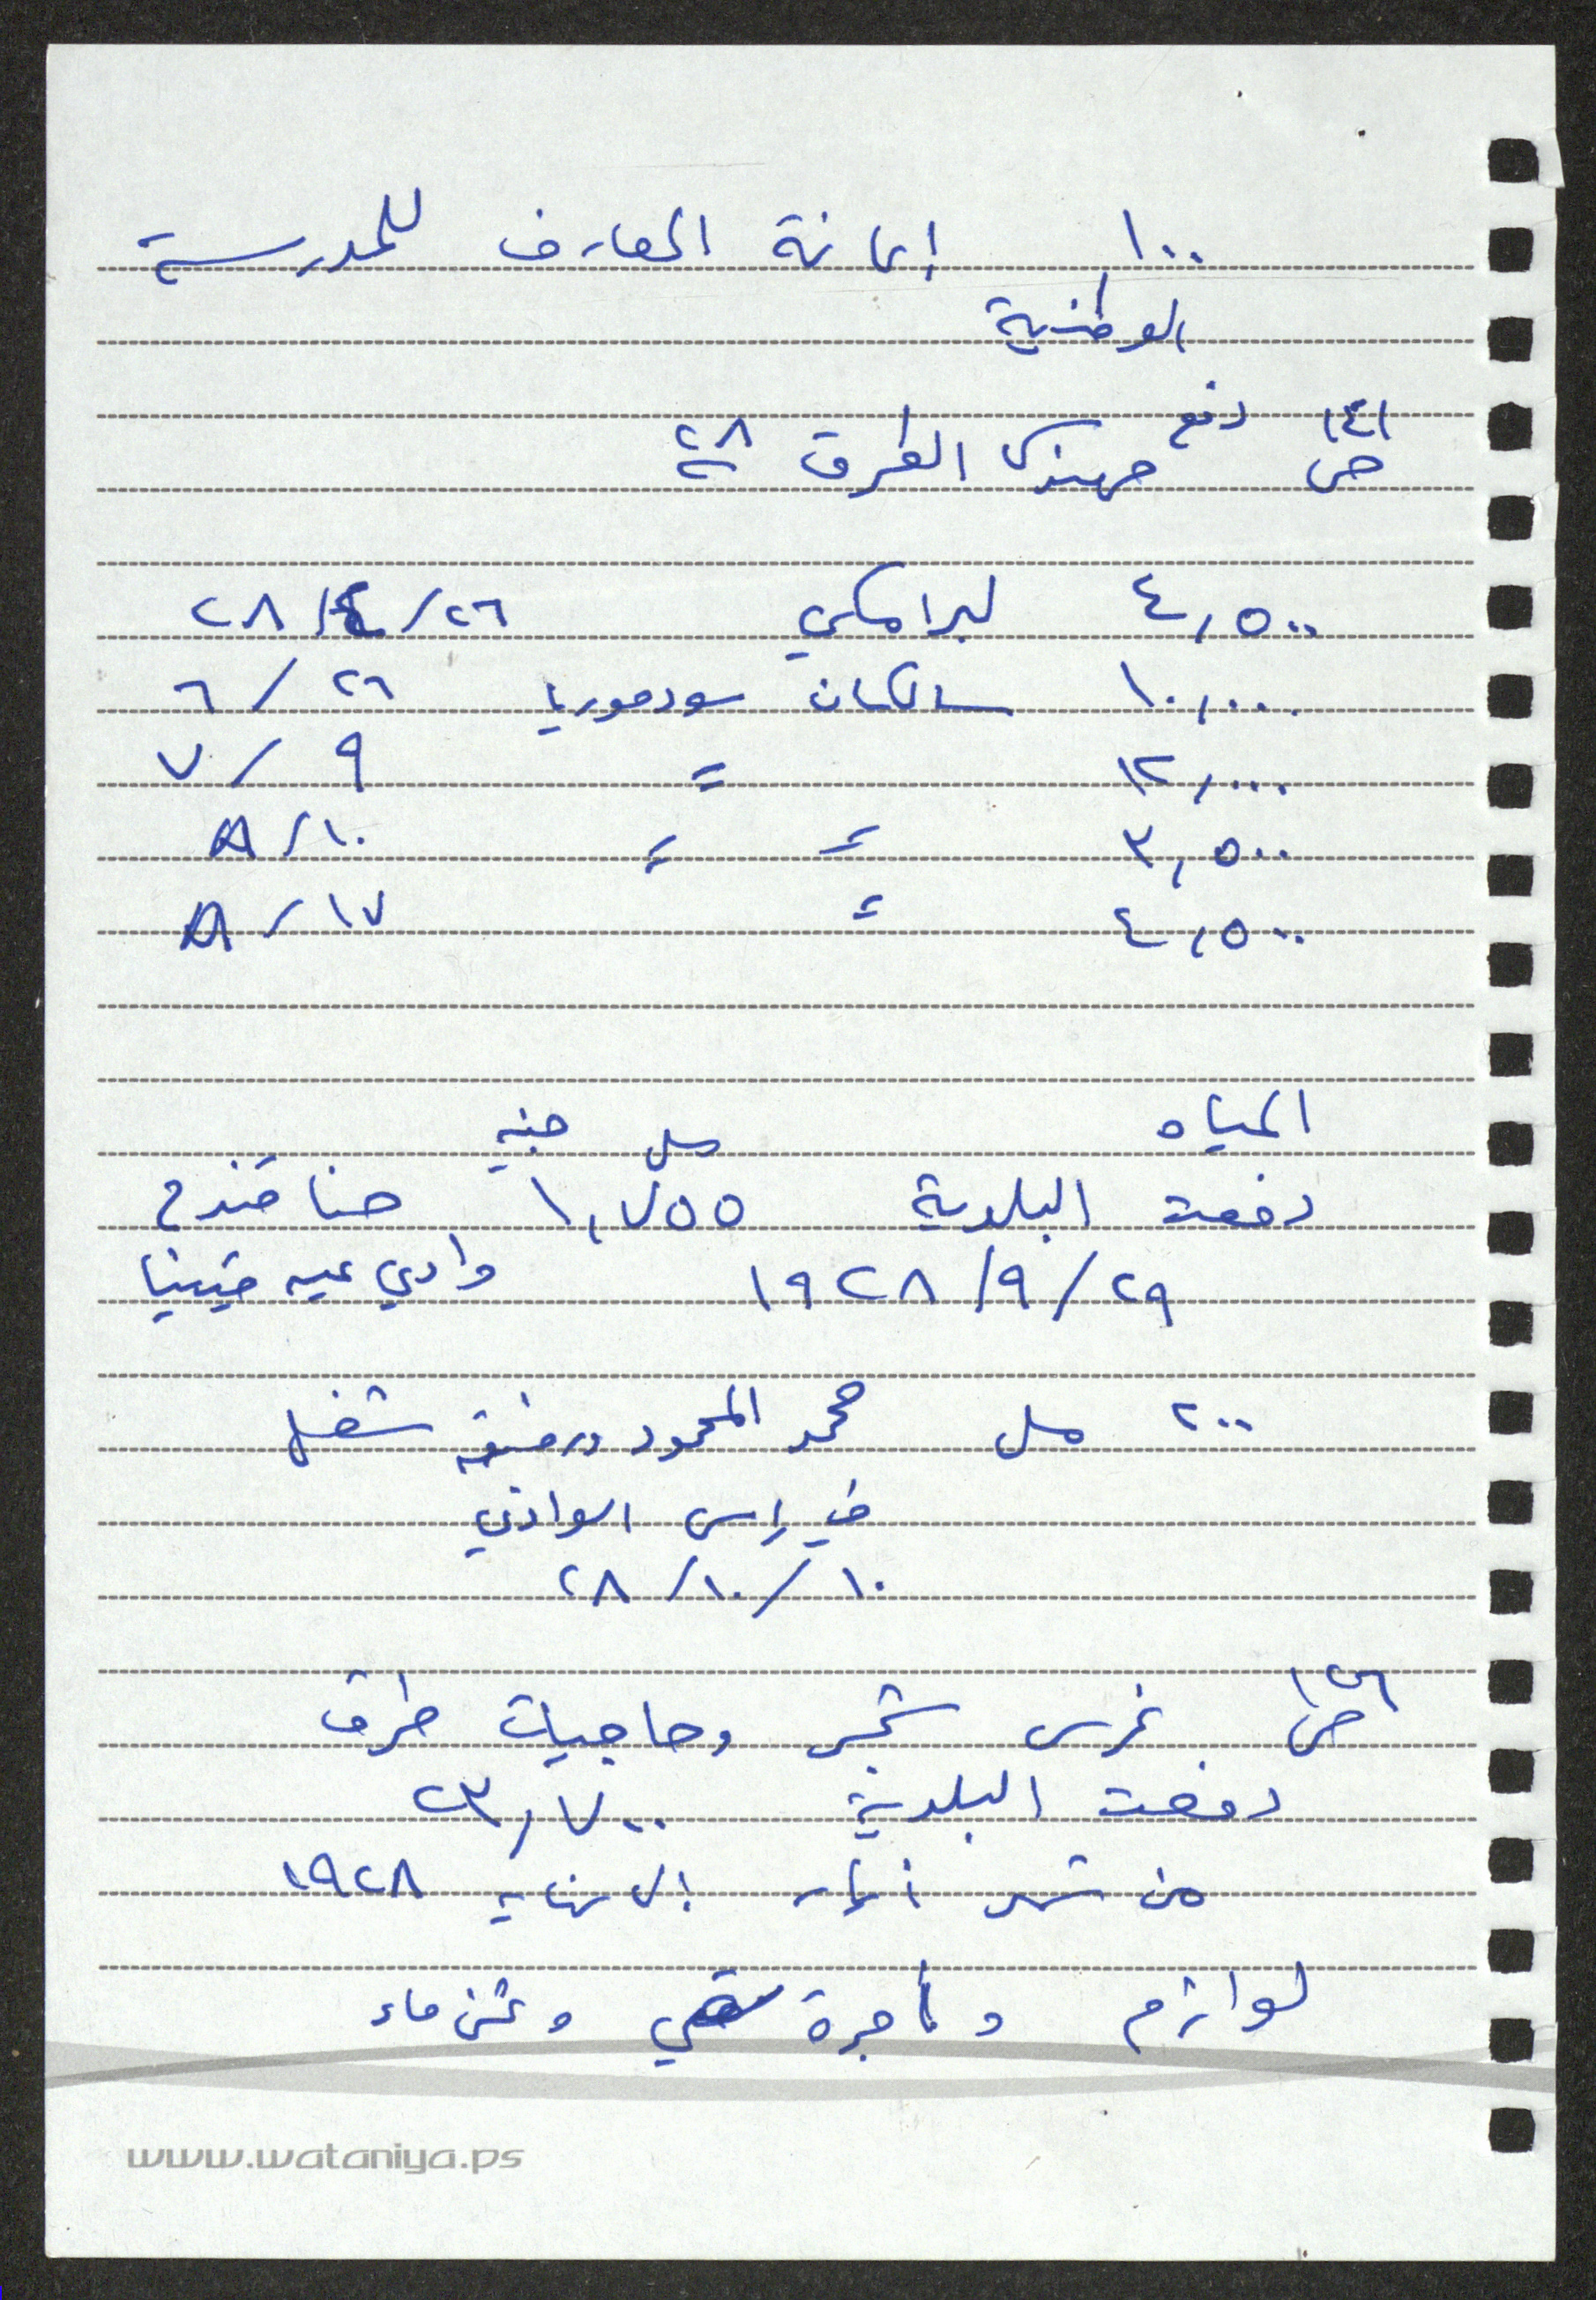 ١٠٠ إعانة المعارف للمدرسة
الوطنية
١٤١
ص دفع مهندس الطرق ٢٨
٤,٥٠٠ لبرامكي ٢٦/٤/٢٨
١٠,٠٠٠ سودموريا ٢٦/٦
١٢,٠٠٠ = ٩/٧
٣,٥٠٠ = = ١٠/٨
٤,٥٠٠ = ١٧/٨
المياه
مل جنيه
دفعت البلدية ١,٧٥٥ حنا قندح
٢٩/٩/١٩٢٨ وادي عين قينيا
٢٠٠ مل محمد المحمود ورفيقه شغل
في راس الوادي
١٠/١٠/٢٨
١٢٦
ص غرس شجر وحاجيات طرق
دفعت البلدية ٢٣,٧٠٠
من شهر أيار الى نهاية ١٩٢٨
لوازم وأجرة سقي وثمن ماء
www.wataniya.ps